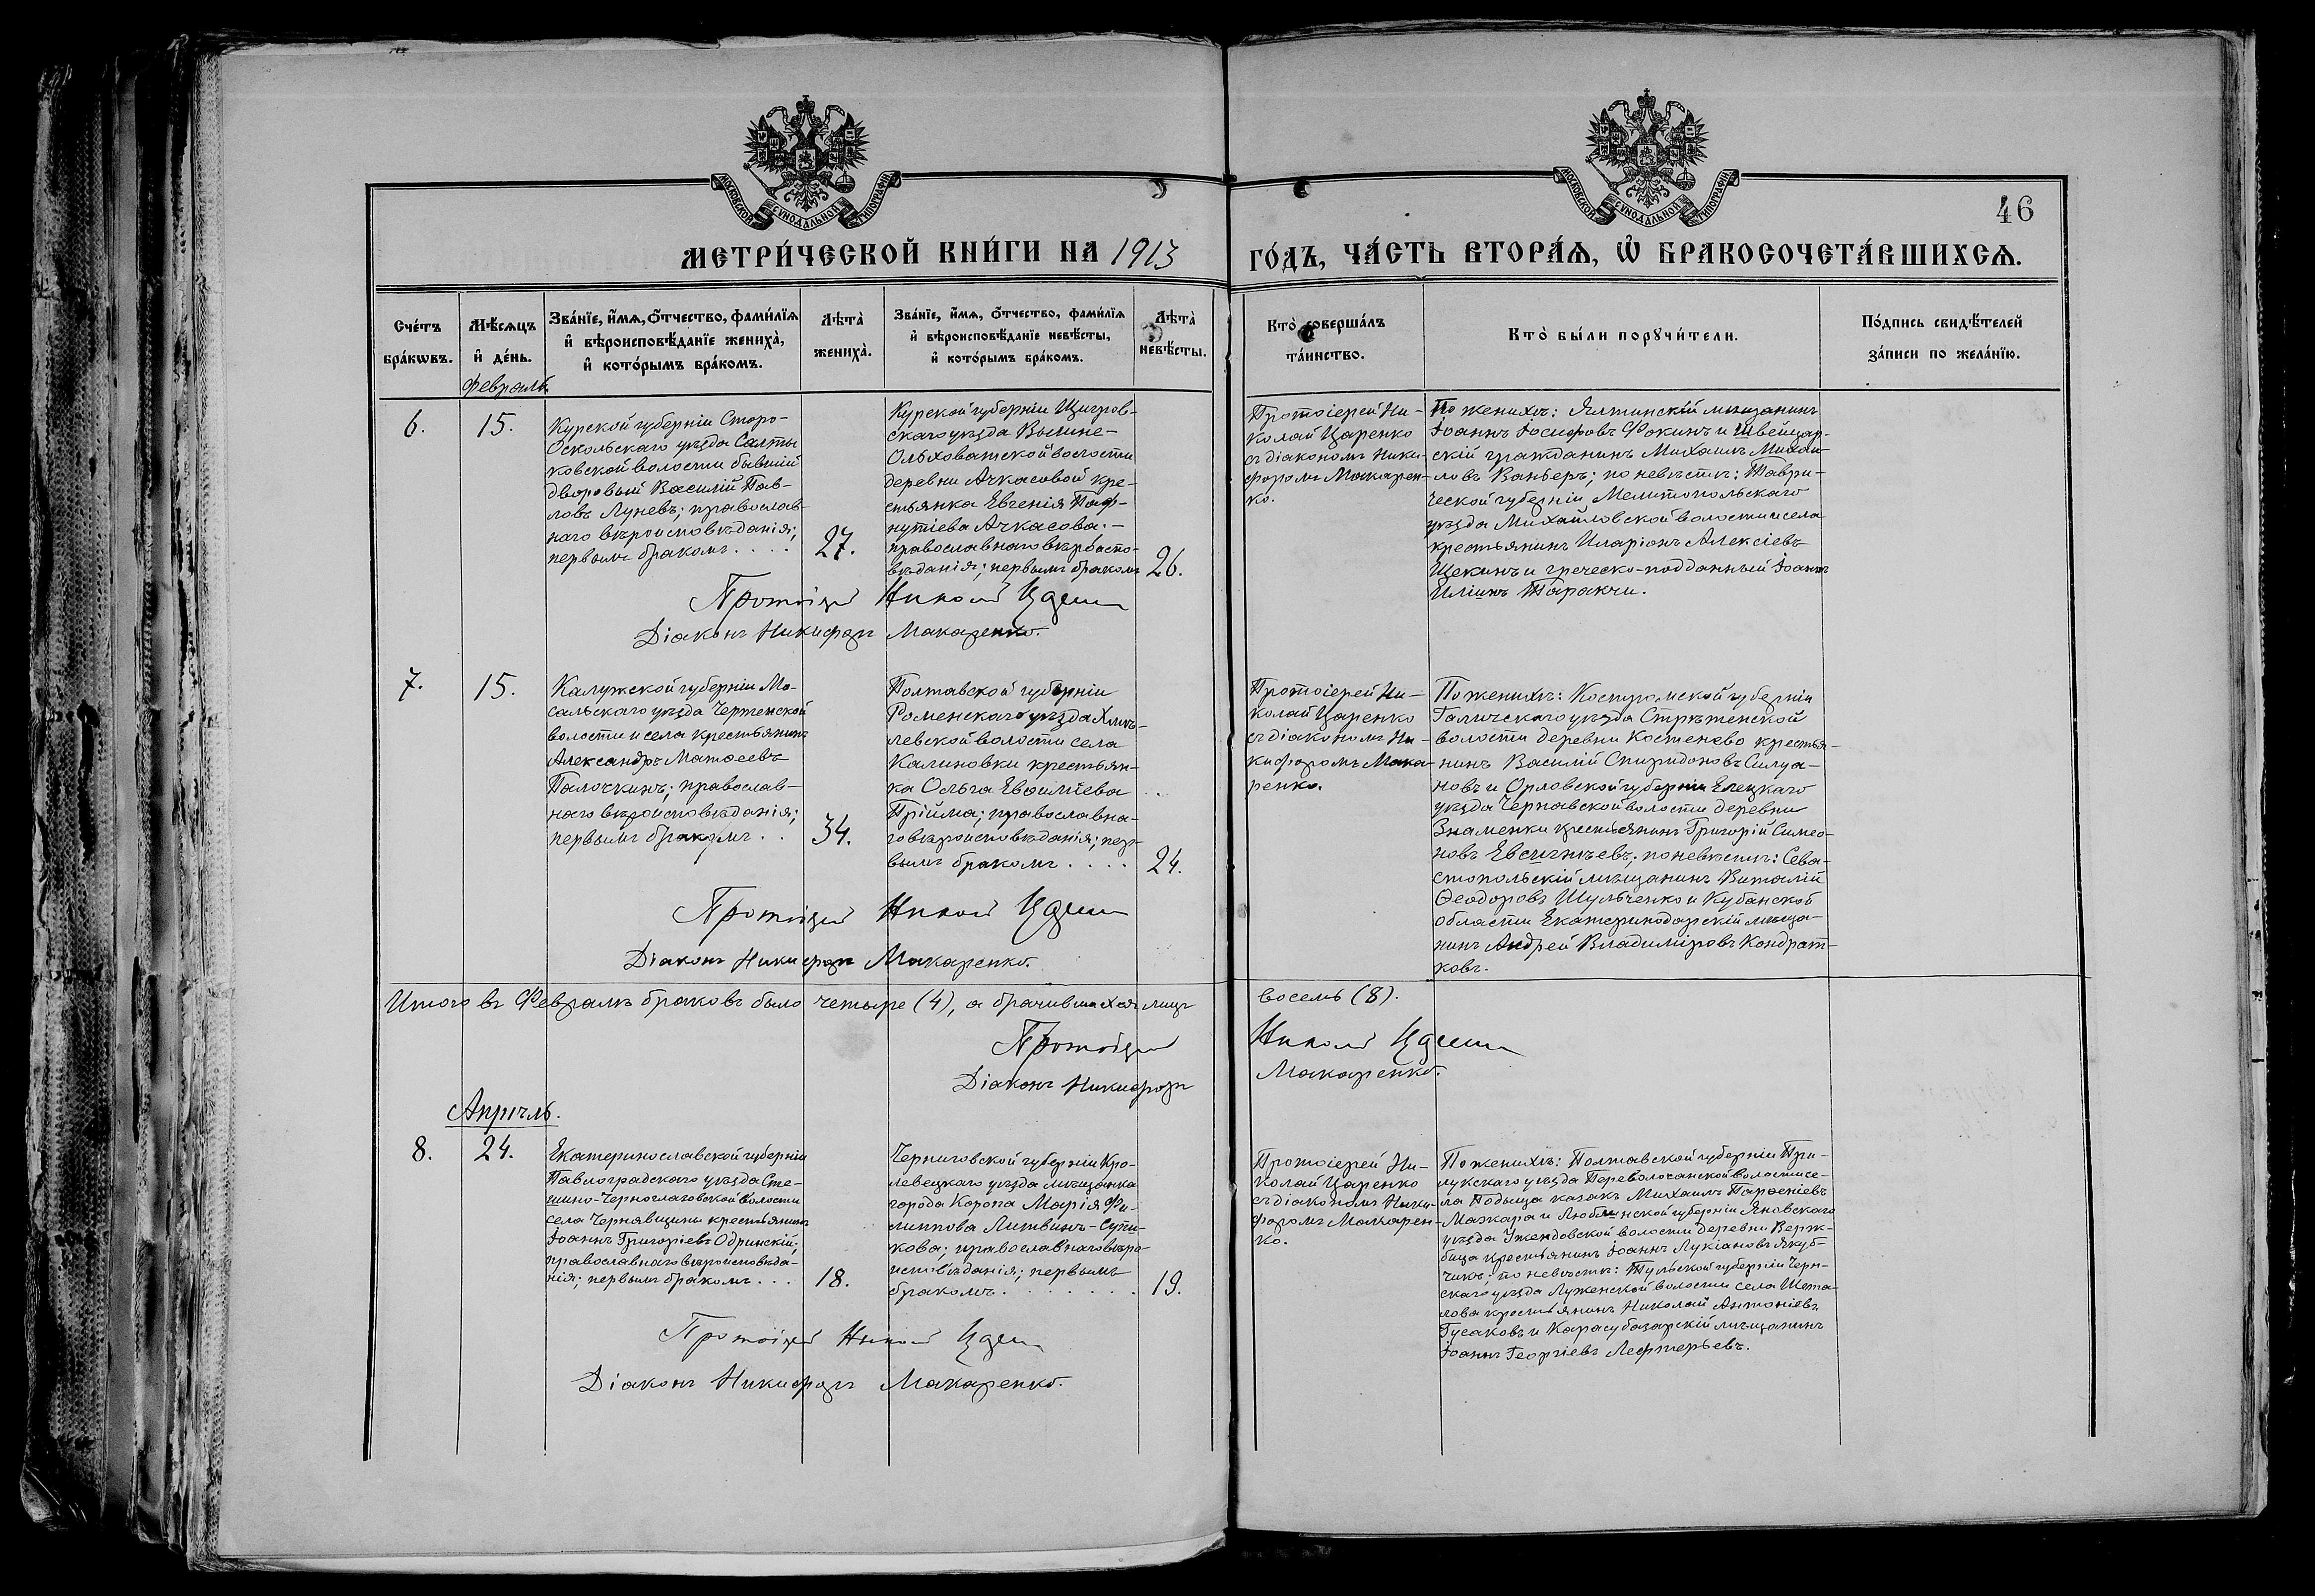 МОСКОВСКОЙ СУНОДАЛЬНОЙ ТИПОГРАФІИ
МОСКОВСКОЙ СУНОДАЛЬНОЙ ТИПОГРАФІИ
46
МЕТРИ́ЧЕСКОЙ КНИ́ГИ НА 1913
ГО́ДЪ, ЧА́СТЬ ВТОРА́Ѧ, Ѡ҆ БРАКОСОЧЕТА́ВШИХСѦ.
Сче́тъ
бра́кѡвъ.
Мѣ́сяцъ
и҆ де́нь.
Февраль.
Зва́нїе, и҆́мѧ, о҆́тчество, фами́лїѧ
и҆ вѣроисповѣ́данїе жениха̀,
и҆ кото́рымъ бра́комъ.
Лѣта̀
жениха̀.
Зва́нїе, и҆́мѧ, о҆́тчество, фами́лїѧ
и҆ вѣроисповѣ́данїе невѣ́сты,
и҆ кото́рымъ бра́комъ.
Лѣта̀
невѣ́сты.
Кто̀ соверша́лъ
та́инство.
Кто̀ бы́ли порꙋчи́тели.
По́дпись свидѣ́телей
за́писи по жела́нїю.
6.
15.
Курской губерніи Старо-
Оскольскаго уѣзда Салты
ковской волости бывшій
дворовый Василій Пав-
ловъ Луневъ; православ-
наго вѣроисповѣданія;
первымъ бракомъ . . . .
27.
Курской губерніи Щигров-
скаго уѣзда Вышне-
Ольховатской волости
деревни Ачкасовой кре-
стьянка Евгенія Паф-
нутіева Ачкасова. -
православнаго вѣроиспо-
вѣданія; первымъ бракомъ
26.
Протоіерей Ни-
колай Царенко
съ діакономъ Ники-
форомъ Макарен-
ко.
По женихѣ: Ялтинскій мѣщанинъ
Іоаннъ Іосифовъ Фокинъ и Швейцар-
скій гражданинъ Михаилъ Михаи-
ловъ Ваньеръ; по невѣстѣ: Таври-
ческой губерніи Мелитопольскаго
уѣзда Михайловской волости и села
крестьянинъ Иларіонъ Алексіевъ
Щекинъ и греческо-подданный Іоаннъ
Иліинъ Таракчи.
Протоіерей Николай Царенко
Діаконъ Никифоръ Макаренко.
7.
15.
Калужской губерніи Мо-
сальскаго уѣзда Чертенской
волости и села крестьянинъ
Александръ Матѳеевъ
Палочкинъ; православ-
наго вѣроисповѣданія;
первымъ бракомъ . .
34.
Полтавской губерніи
Роменскаго уѣзда Хмѣ-
левской волости села
Калиновки крестьян-
ка Ольга Евѳиміева
Прійма; православна-
го вѣроисповѣданія; пер-
вымъ бракомъ . . . .
24.
Протоіерей Ни-
колай Царенко
съ діакономъ Ни-
кифоромъ Мака-
ренко.
По женихѣ: Костромской губерніи
Галичскаго уѣзда Стрѣтенской
волости деревни Костенево крестья-
нинъ Василій Спиридоновъ Силуа-
новъ и Орловской губерніи Елецкаго
уѣзда Чернавской волости деревни
Знаменки крестьянинъ Григорій Симео-
новъ Евсигнѣевъ; по невѣстѣ: Сева-
стопольскій мѣщанинъ Виталій
Ѳеодоровъ Шульченко и Кубанской
области Екатеринодарскій мѣща-
нинъ Андрей Владиміровъ Кондрат-
ковъ.
Протоіерей Николай Царенко
Діаконъ Никифоръ Макаренко.
Итого въ Февралѣ браковъ было четыре (4), а брачившихся лицъ восемь (8).
Протоіерей Николай Царенко
Діаконъ Никифоръ Макаренко.
Апрѣль.
8.
24.
Екатеринославской губерніи
Павлоградскаго уѣзда
села Чернявщины крестьянинъ
Іоаннъ Григоріевъ Одринскій;
православнаго вѣроисповѣда-
нія; первымъ бракомъ . . .
18.
Черниговской губерніи Кро-
левецкаго уѣзда мѣщанка
города Коропа Марія Фи-
липпова Литвинъ-Супи-
кова; православнаго вѣро-
исповѣданія; первымъ
бракомъ . . . . . . .
19.
Протоіерей Ни-
колай Царенко
съ діакономъ Ники-
форомъ Макарен-
ко.
По женихѣ: Полтавской губерніи При-
лукскаго уѣзда Переволочанской волости се-
ла Подыща казакъ Михаилъ Парѳеніевъ
Мажара и Люблинской губерніи Яновскаго
уѣзда Ужендовской волости деревни Верж-
бица крестьянинъ Іоаннъ Лукіановъ Якуб-
чикъ; по невѣстѣ: Тульской губерніи Черн-
скаго уѣзда Луженской волости села Шета-
лова крестьянинъ Николай Антоніевъ
Гусаковъ и Карасубазарскій мѣщанинъ
Іоаннъ Георгіевъ Лефтерьевъ.
Протоіерей Николай Царенко
Діаконъ Никифоръ Макаренко.